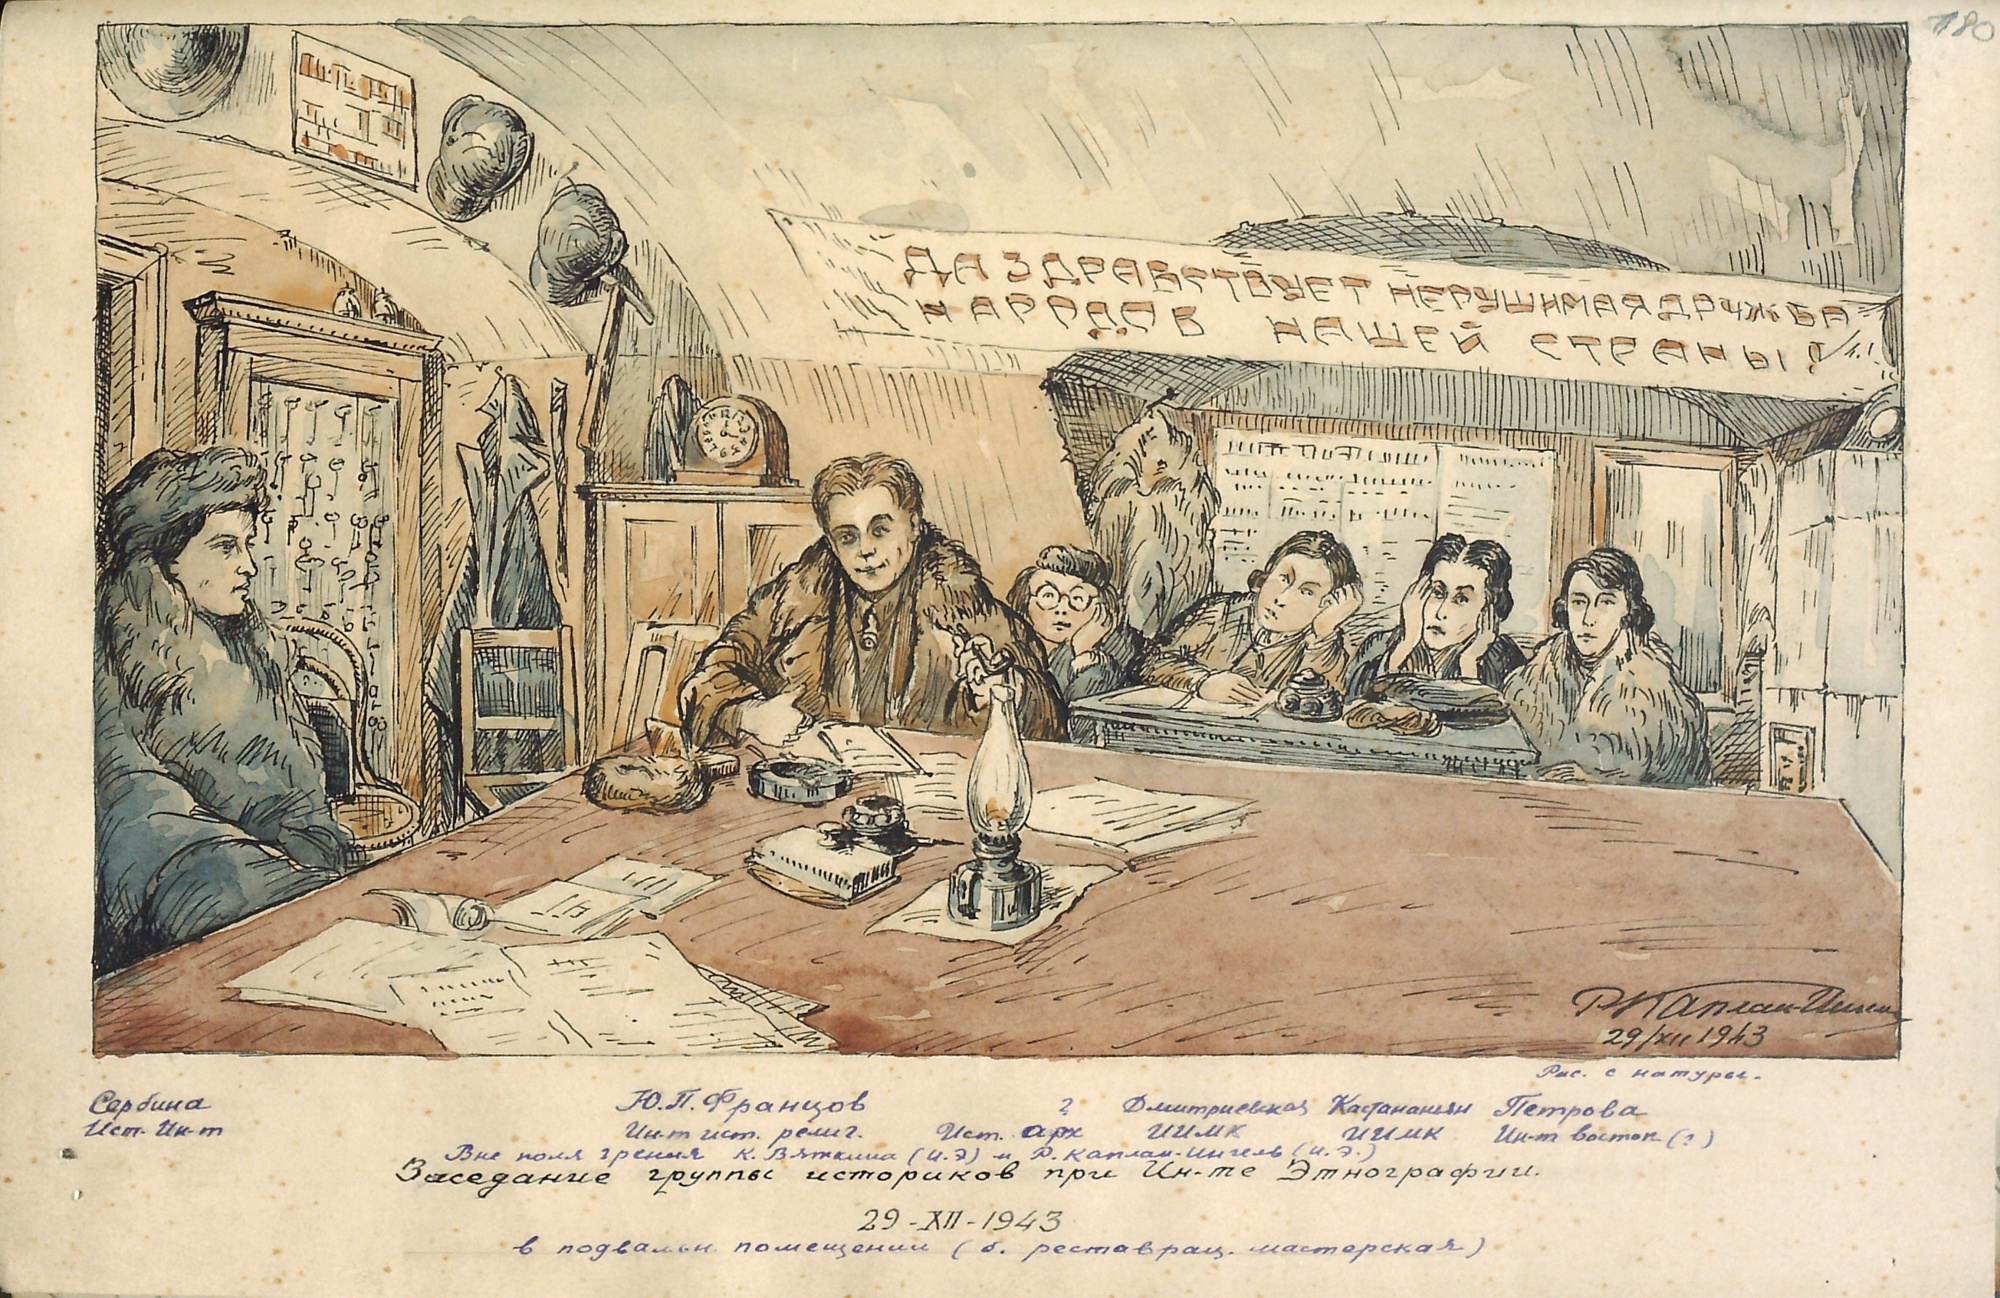 180
ДА ЗДРАВСТВУЕТ НЕРУШИМАЯ ДРУЖБА
НАРОДОВ НАШЕЙ СТРАНЫ!
Р Каплан-Ингель
29/XII 1943
Рис. с натуры.
Сербина Ю.П. Францов ? Дмитриевская Петрова
Ист. Ин-т Ин-т ист. религ. Ист. арх ИИМК ИИМК Ин-т восток (?)
Вне поля зрения К. Вяткина (И.Э) и Р. Каплан-Ингель (И.Э.)
Заседание группы историков при Ин-те Этнографии.
29-XII-1943
в подвальн. помещении (б. реставрац. мастерская)